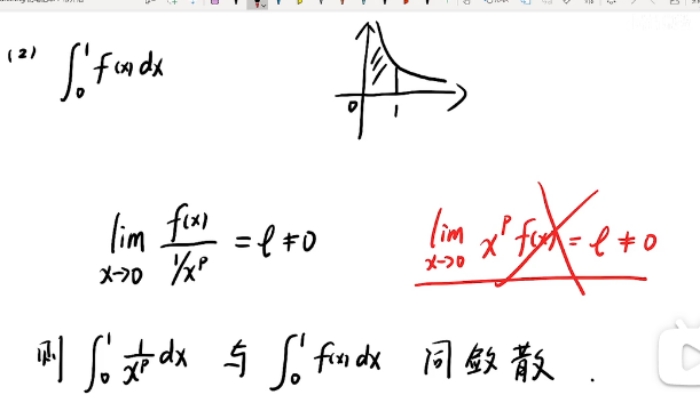 (2) ∫₀¹ f(x) dx
0 1
lim x→0 f(x) / 1/x^p = l ≠ 0
lim x→0 x^p f(x) = l ≠ 0
则 ∫₀¹ 1/x^p dx 与 ∫₀¹ f(x) dx 同敛散.